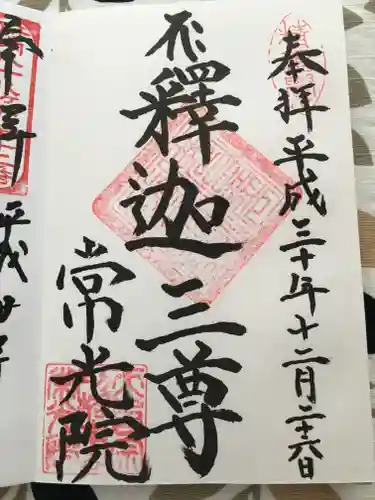 奉拝 平成三十年十二月二十六日
釋迦三尊
常光院
奉拝 平成